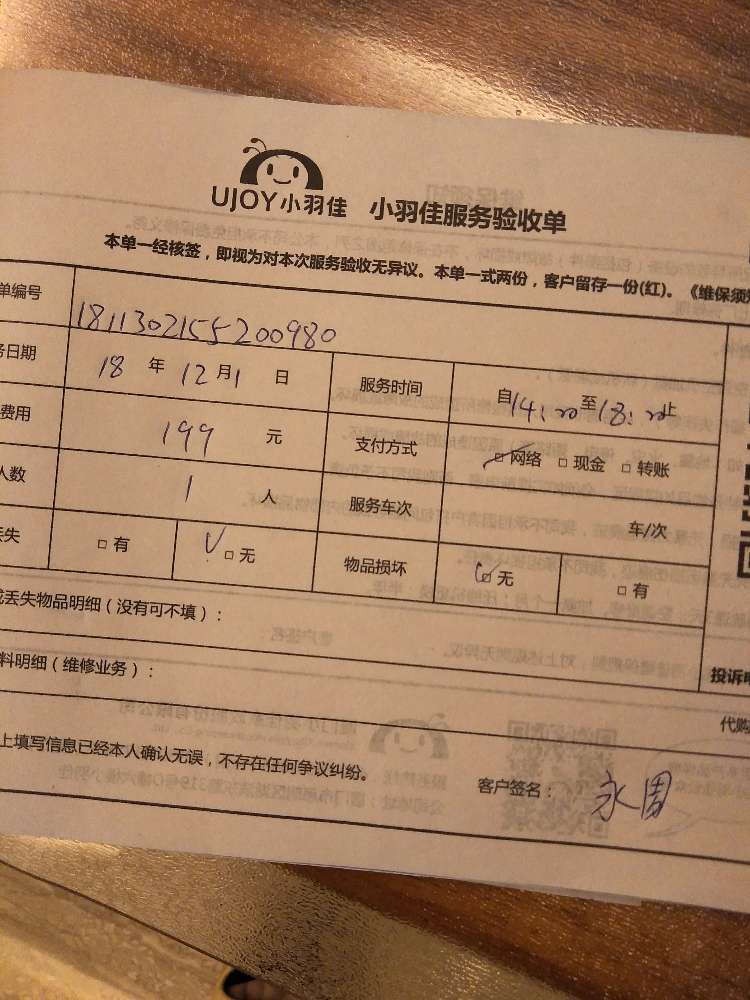 UJOY小羽佳 小羽佳服务验收单
本单一经核签，即视为对本次服务验收无异议。本单一式两份，客户留存一份(红)。《维保须知
单编号 1811302155200980
务日期 18 年 12 月 1 日 服务时间 自14:00至18:00止
费用 199 元 支付方式 网络 现金 转账
人数 1 人 服务车次 车/次
丢失 有 √ 无 物品损坏 无 有
或丢失物品明细（没有可不填）：
料明细（维修业务）：
投诉电
代购
上填写信息已经本人确认无误，不存在任何争议纠纷。
客户签名：